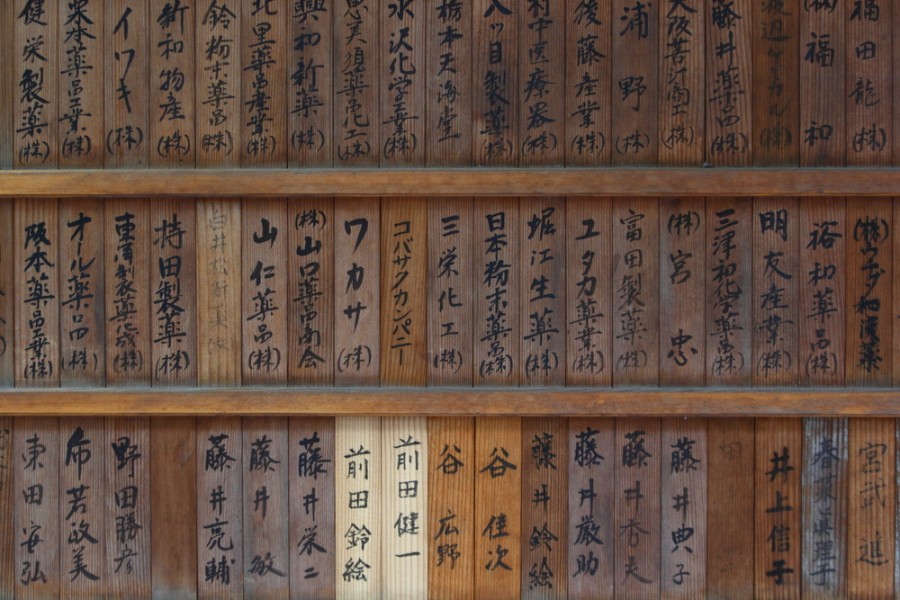 福田龍(株)
(株)福和
渡辺ケミカル(株)
藤井薬品(株)
浦野(株)
後藤産業(株)
村中医療器(株)
八ッ目製薬(株)
栃本天海堂
沢化学工業(株)
恵美須薬品化工(株)
興和新薬(株)
北里薬品産業(株)
鈴粉末薬品(株)
新和物産(株)
イワキ(株)
本薬品工業(株)
健栄製薬(株)
(株)ウチダ和漢薬
裕和薬品(株)
明友産業(株)
三津和化学薬品(株)
(株)宮忠
富田製薬(株)
ユタカ薬業(株)
堀江生薬(株)
日本粉末薬品(株)
三栄化工(株)
コバサクカンパニー
ワカサ(株)
(株)山口薬品商会
山仁薬品(株)
白井松新薬(株)
持田製薬(株)
東洋製薬化成(株)
オール薬品(株)
阪本薬品工業(株)
宮武進
春東眞理子
井上信子
藤井典子
藤井秀夫
藤井厳助
藤井鈴絵
谷佳次
谷広野
前田健一
前田鈴絵
藤井栄二
藤井敏
藤井亮輔
野田勝彦
布若政美
東田安弘